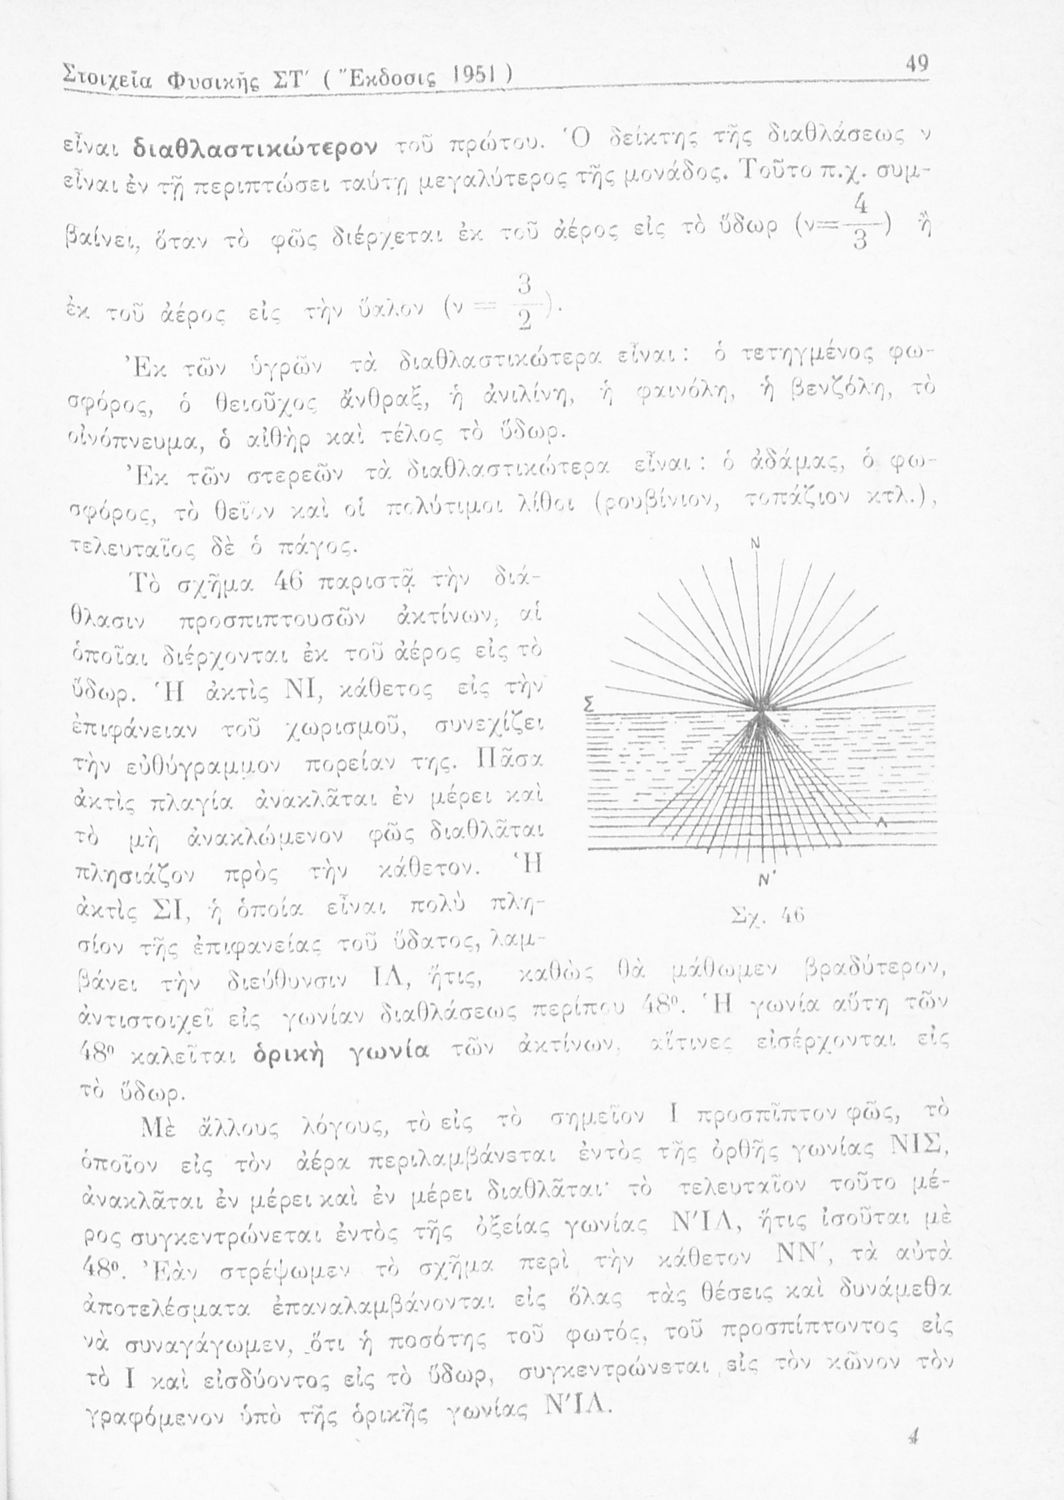 Στοιχεῖα Φυσικῆς ΣΤ' ( Ἔκδοσις 1951 ) 49
εἶναι διαθλαστικώτερον τοῦ πρώτου. Ὁ δείκτης τῆς διαθλάσεως ν
εἶναι ἐν τῇ περιπτώσει ταύτῃ μεγαλύτερος τῆς μονάδος. Τοῦτο π.χ. συμ-
βαίνει, ὅταν τὸ φῶς διέρχεται ἐκ τοῦ ἀέρος εἰς τὸ ὕδωρ (ν=4/3) ἢ
ἐκ τοῦ ἀέρος εἰς τὴν ὕαλον (ν = 3/2).
Ἐκ τῶν ὑγρῶν τὰ διαθλαστικώτερα εἶναι : ὁ τετηγμένος φω-
σφόρος, ὁ θειοῦχος ἄνθραξ, ἡ ἀνιλίνη, ἡ φαινόλη, ἡ βενζόλη, τὸ
οἰνόπνευμα, ὁ αἰθὴρ καὶ τέλος τὸ ὕδωρ.
Ἐκ τῶν στερεῶν τὰ διαθλαστικώτερα εἶναι : ὁ ἀδάμας, ὁ φω-
σφόρος, τὸ θεῖον καὶ οἱ πολύτιμοι λίθοι (ρουβίνιον, τοπάζιον κτλ.),
τελευταῖος δὲ ὁ πάγος.
Τὸ σχῆμα 46 παριστᾷ τὴν διά-
θλασιν προσπιπτουσῶν ἀκτίνων, αἱ
ὁποῖαι διέρχονται ἐκ τοῦ ἀέρος εἰς τὸ
ὕδωρ. Ἡ ἀκτὶς ΝΙ, κάθετος εἰς τὴν
ἐπιφάνειαν τοῦ χωρισμοῦ, συνεχίζει
τὴν εὐθύγραμμον πορείαν της. Πᾶσα
ἀκτὶς πλαγία ἀνακλᾶται ἐν μέρει καὶ
τὸ μὴ ἀνακλώμενον φῶς διαθλᾶται
πλησιάζον πρὸς τὴν κάθετον. Ἡ
ἀκτὶς ΣΙ, ἡ ὁποία εἶναι πολὺ πλη-
σίον τῆς ἐπιφανείας τοῦ ὕδατος, λαμ-
βάνει τὴν διεύθυνσιν ΙΛ, ἥτις, καθὼς θὰ μάθωμεν βραδύτερον,
ἀντιστοιχεῖ εἰς γωνίαν διαθλάσεως περίπου 48°. Ἡ γωνία αὕτη τῶν
48° καλεῖται ὁρικὴ γωνία τῶν ἀκτίνων, αἵτινες εἰσέρχονται εἰς
τὸ ὕδωρ.
Ν
Σ
Λ
Ν'
Σχ. 46
Μὲ ἄλλους λόγους, τὸ εἰς τὸ σημεῖον Ι προσπῖπτον φῶς, τὸ
ὁποῖον εἰς τὸν ἀέρα περιλαμβάνεται ἐντὸς τῆς ὀρθῆς γωνίας ΝΙΣ,
ἀνακλᾶται ἐν μέρει καὶ ἐν μέρει διαθλᾶται· τὸ τελευταῖον τοῦτο μέ-
ρος συγκεντρώνεται ἐντὸς τῆς ὀξείας γωνίας Ν'ΙΛ, ἥτις ἰσοῦται μὲ
48°. Ἐὰν στρέψωμεν τὸ σχῆμα περὶ τὴν κάθετον ΝΝ', τὰ αὐτὰ
ἀποτελέσματα ἐπαναλαμβάνονται εἰς ὅλας τὰς θέσεις καὶ δυνάμεθα
νὰ συναγάγωμεν, ὅτι ἡ ποσότης τοῦ φωτός, τοῦ προσπίπτοντος εἰς
τὸ Ι καὶ εἰσδύοντος εἰς τὸ ὕδωρ, συγκεντρώνεται εἰς τὸν κῶνον τὸν
γραφόμενον ὑπὸ τῆς ὁρικῆς γωνίας Ν'ΙΛ.
4